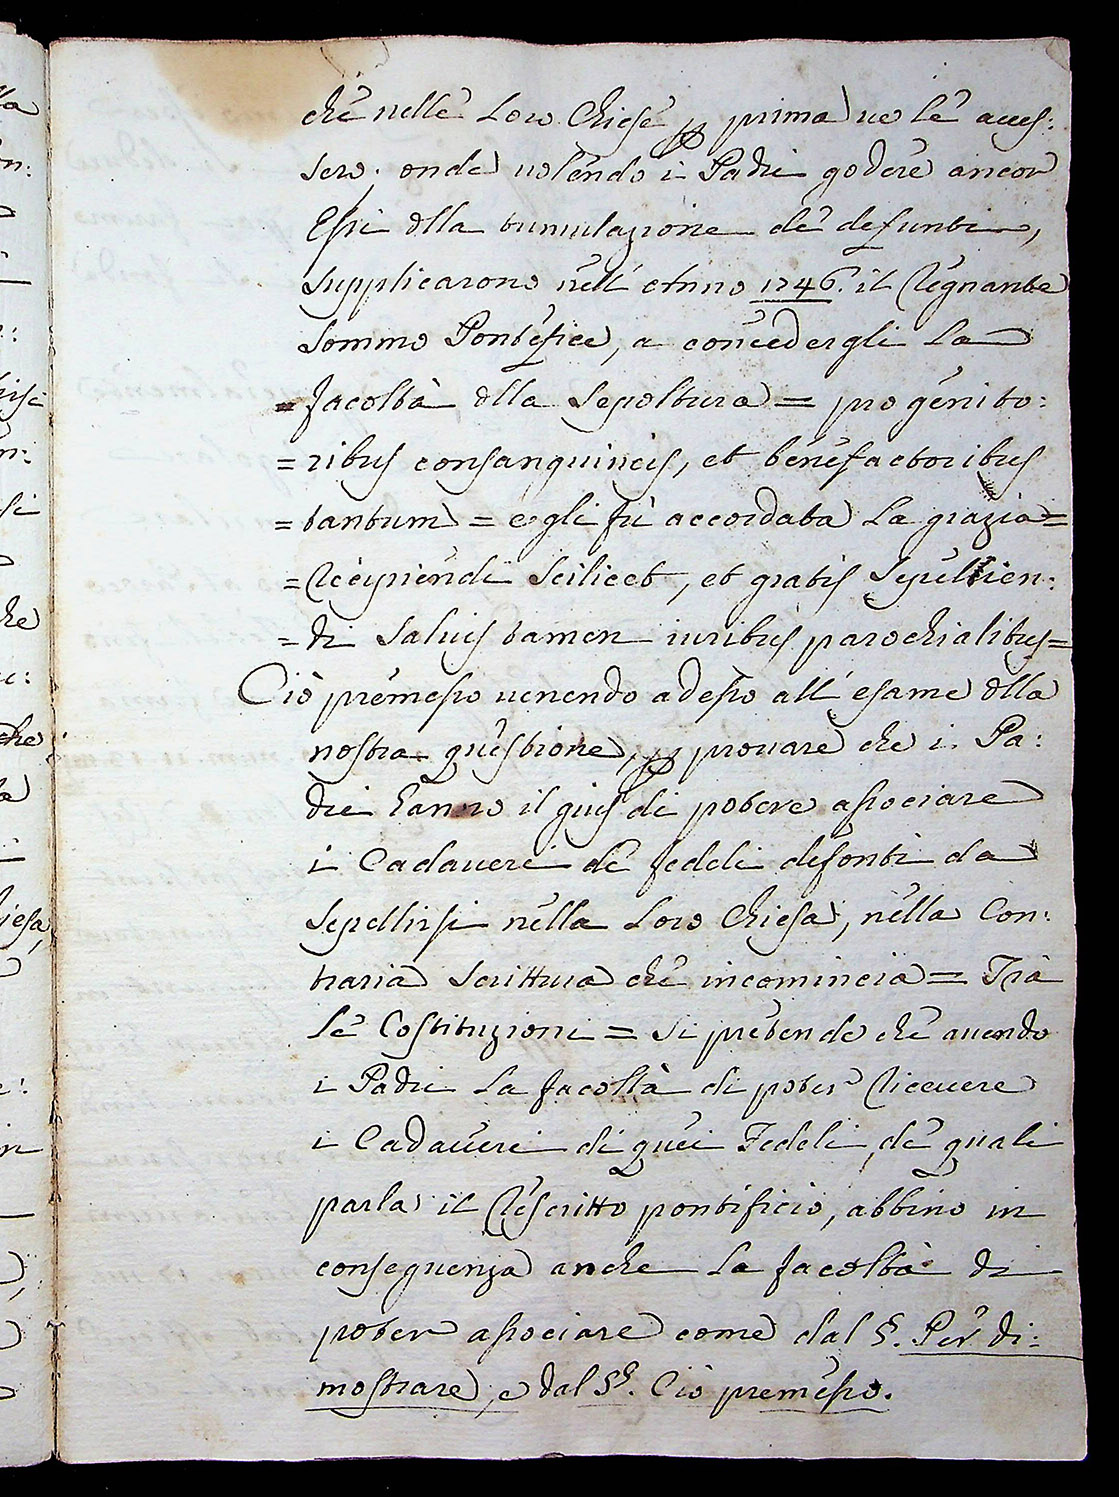 che nelle Loro Chiese p prima ve le aves:
sero. onde volendo i Padri godere ancor
Essi dlla tumulazione de defunti,
Supplicarono nell' Anno 1746. il Regnante
Sommo Pontefice, a concedergli La
= facoltà dlla Sepoltura = progenito:
= ribus consanguineis, et benefactoribus
= tantum = e gli fù accordata La grazia =
= Recipiendi Scilicet, et gratis Sepellien:
= di Salvis tamen iuribus parochialibus =
Ciò premesso venendo adesso all' esame dlla
nostra questione, p provare che i Pa:
dri hanno il gius di potere associare
i Cadaveri de fedeli defonti da
Sepellirsi nella Loro Chiesa, nella Con:
traria Scrittura che incomincia = Trà
Le Costituzioni = si pretende che avendo
i Padri La facoltà di poter Ricevere
i Cadaveri di quei Fedeli, de quali
parla il Rescritto pontificio, abbino in
conseguenza anche La facoltà di
poter associare come dal §. Per di:
mostrare, e dal §. Ciò premesso.